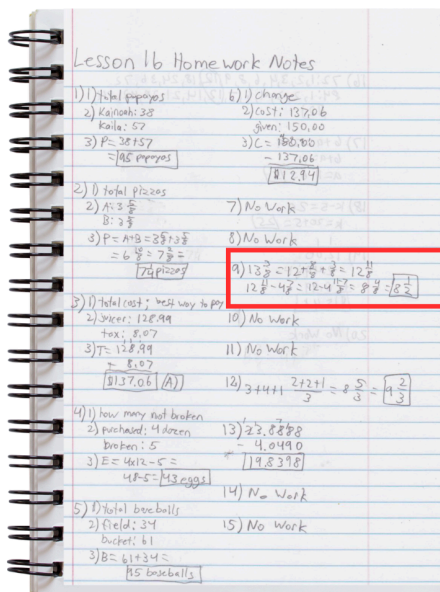 Lesson 16 Homework Notes
1) 1) total papayas
2) Kainoah: 38
Kaila: 57
3) P = 38+57
= 95 papayas
2) 1) total pizzas
2) A: 3 5/8
B: 3 5/8
3) P = A+B = 3 5/8 + 3 5/8
= 6 10/8 = 7 2/8 =
pizzas
3) 1) total cost; best way to pay
2) juicer: 128.99
tax: 8.07
3) T = 128.99
+ 8.07
$137.06 (A)
4) 1) how many not broken
2) purchased: 4 dozen
broken: 5
3) E = 4x12-5 =
48-5 = 43 eggs
5) 1) total baseballs
2) field: 34
bucket: 61
3) B = 61+34 =
95 baseballs
6) 1) change
2) cost: 137.06
given: 150.00
3) C = 150.00
- 137.06
$12.94
7) No Work
8) No Work
9) 13 3/8 = 12 + 8/8 + 3/8 = 12 11/8
12 11/8 - 4 7/8 = 12-4 11-7/8 = 8 4/8 = 8 1/2
10) No Work
11) No Work
12) 3+4+1 2+2+1/3 = 8 5/3 = 9 2/3
13) 23.8888
- 4.0490
19.8398
14) No Work
15) No Work